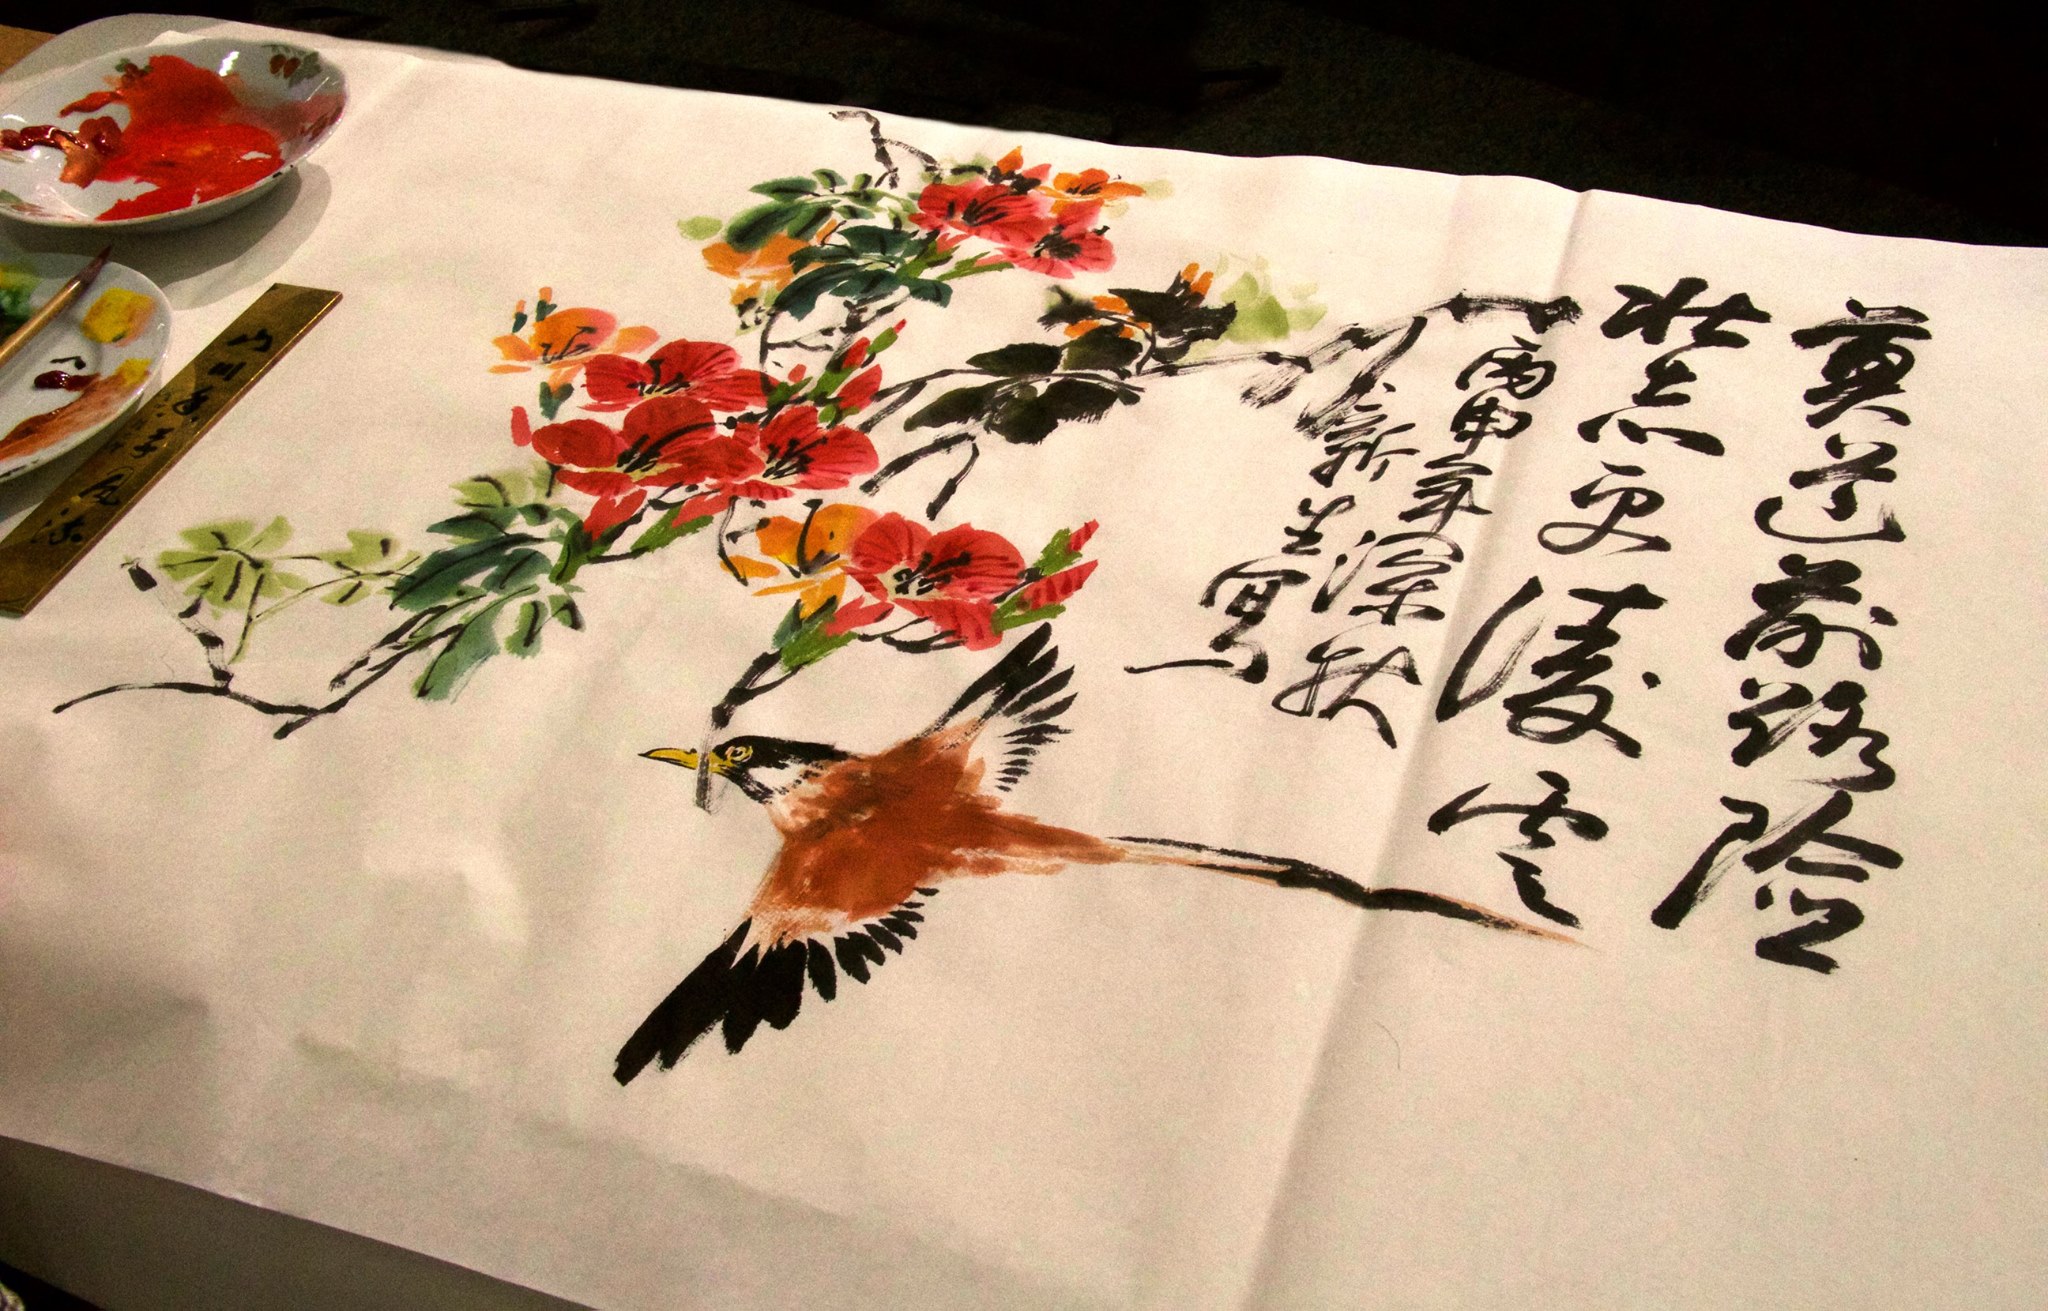 莫道前路险
壮志更凌云
丙申年深秋
新兰写